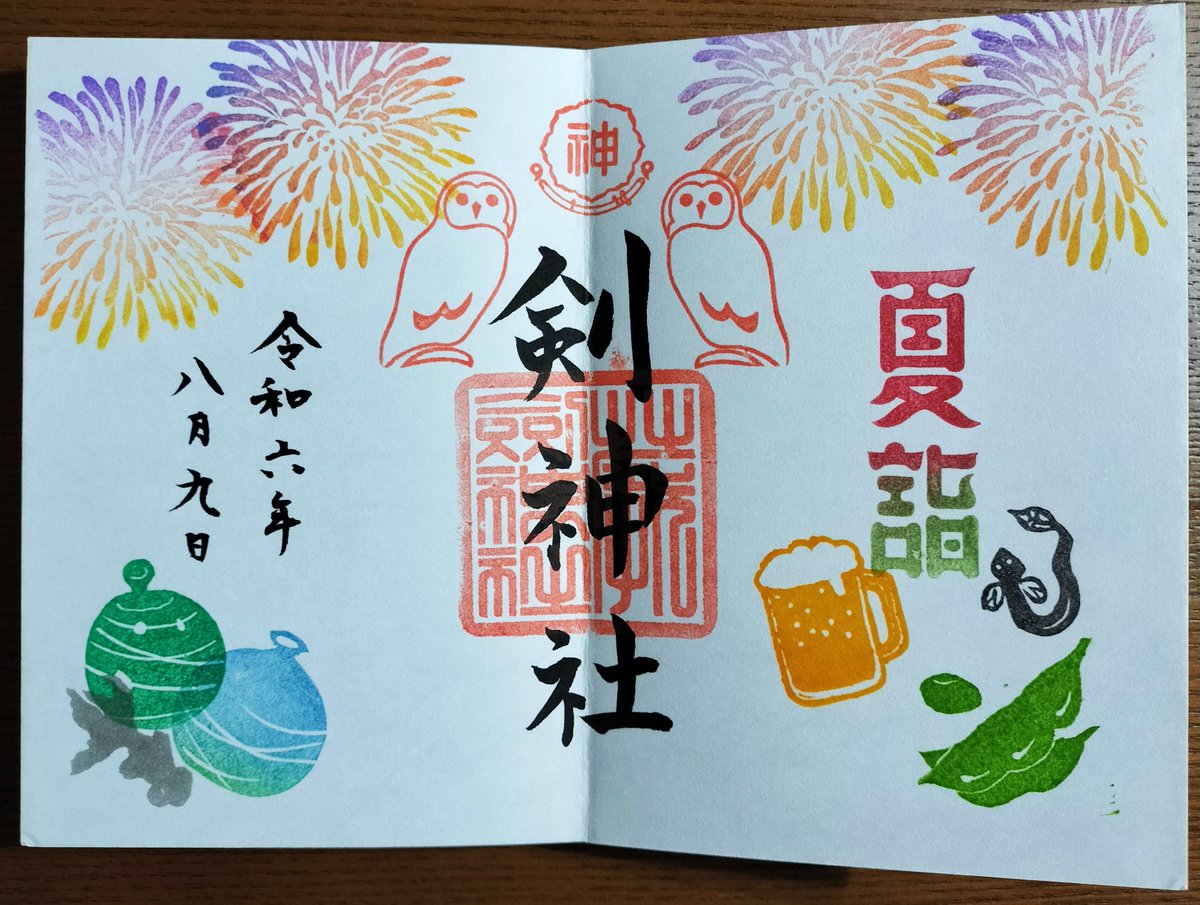 夏詣
神
剣神社
令和六年
八月九日